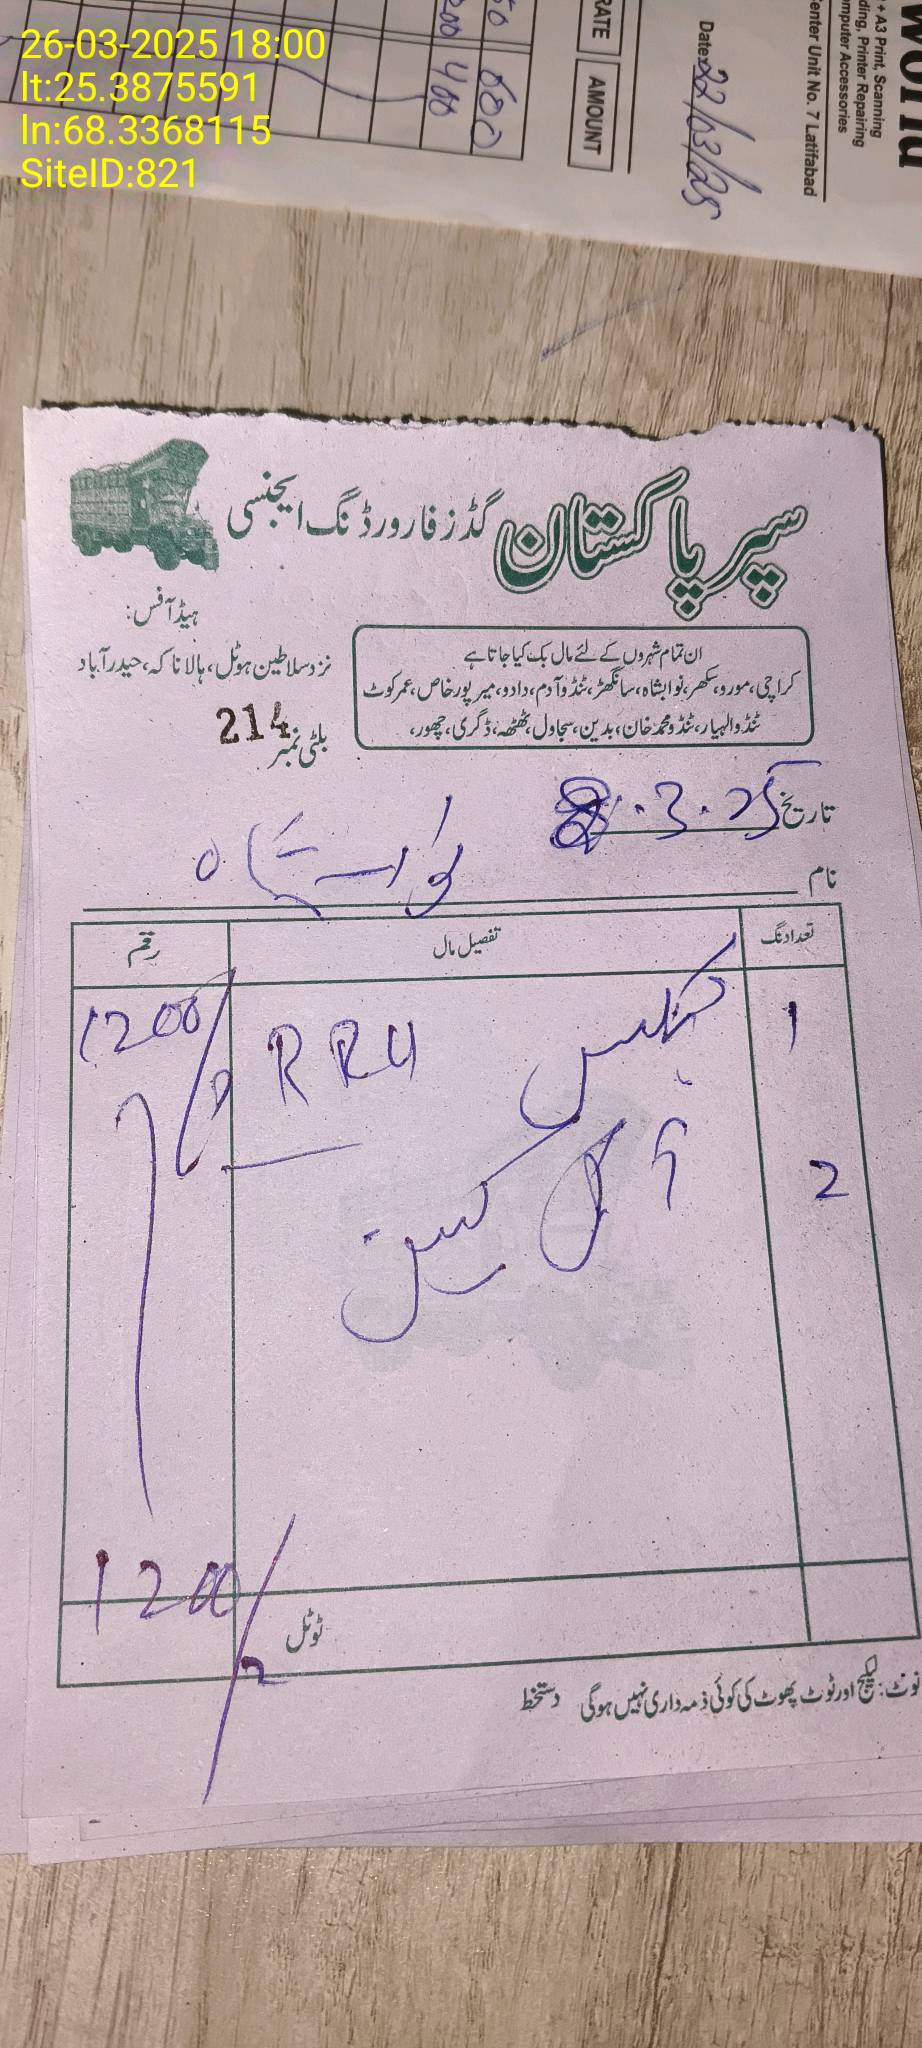 26-03-2025 18:00
lt:25.3875591
ln:68.3368115
SiteID:821
World
+ A3 Print, Scanning
ding, Printer Repairing
mputer Accessories
Center Unit No. 7 Latifabad
Date: 22/03/25
RATE AMOUNT
600
200 400
سپر پاکستان گڈز فارورڈنگ ایجنسی
ہیڈ آفس:
نزد سلاطین ہوٹل، ہالا ناکہ، حیدرآباد
ان تمام شہروں کے لئے مال بک کیا جاتا ہے
کراچی، مورو، سکھر، نوابشاہ، سانگھڑ، ٹنڈو آدم، دادو، میرپور خاص، عمرکوٹ
ٹنڈوالہیار، ٹنڈو محمد خان، بدین، سجاول، ٹھٹھہ، ڈگری، چھور،
بلٹی نمبر 214
تاریخ .3.25
نام نوابشاہ
تعداد نگ تفصیل مال رقم
1 RRU 1200/
2
ٹوٹل 1200/
نوٹ: لیکیج اور ٹوٹ پھوٹ کی کوئی ذمہ داری نہیں ہوگی دستخط